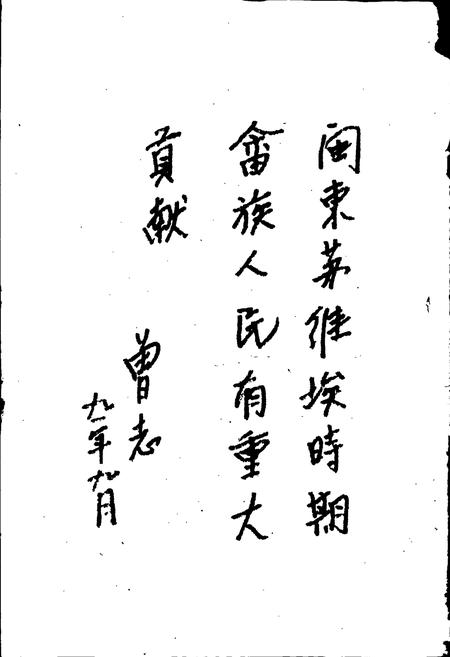 闽東苏维埃時期
畲族人民有重大
貢献
曾志
九一年九月